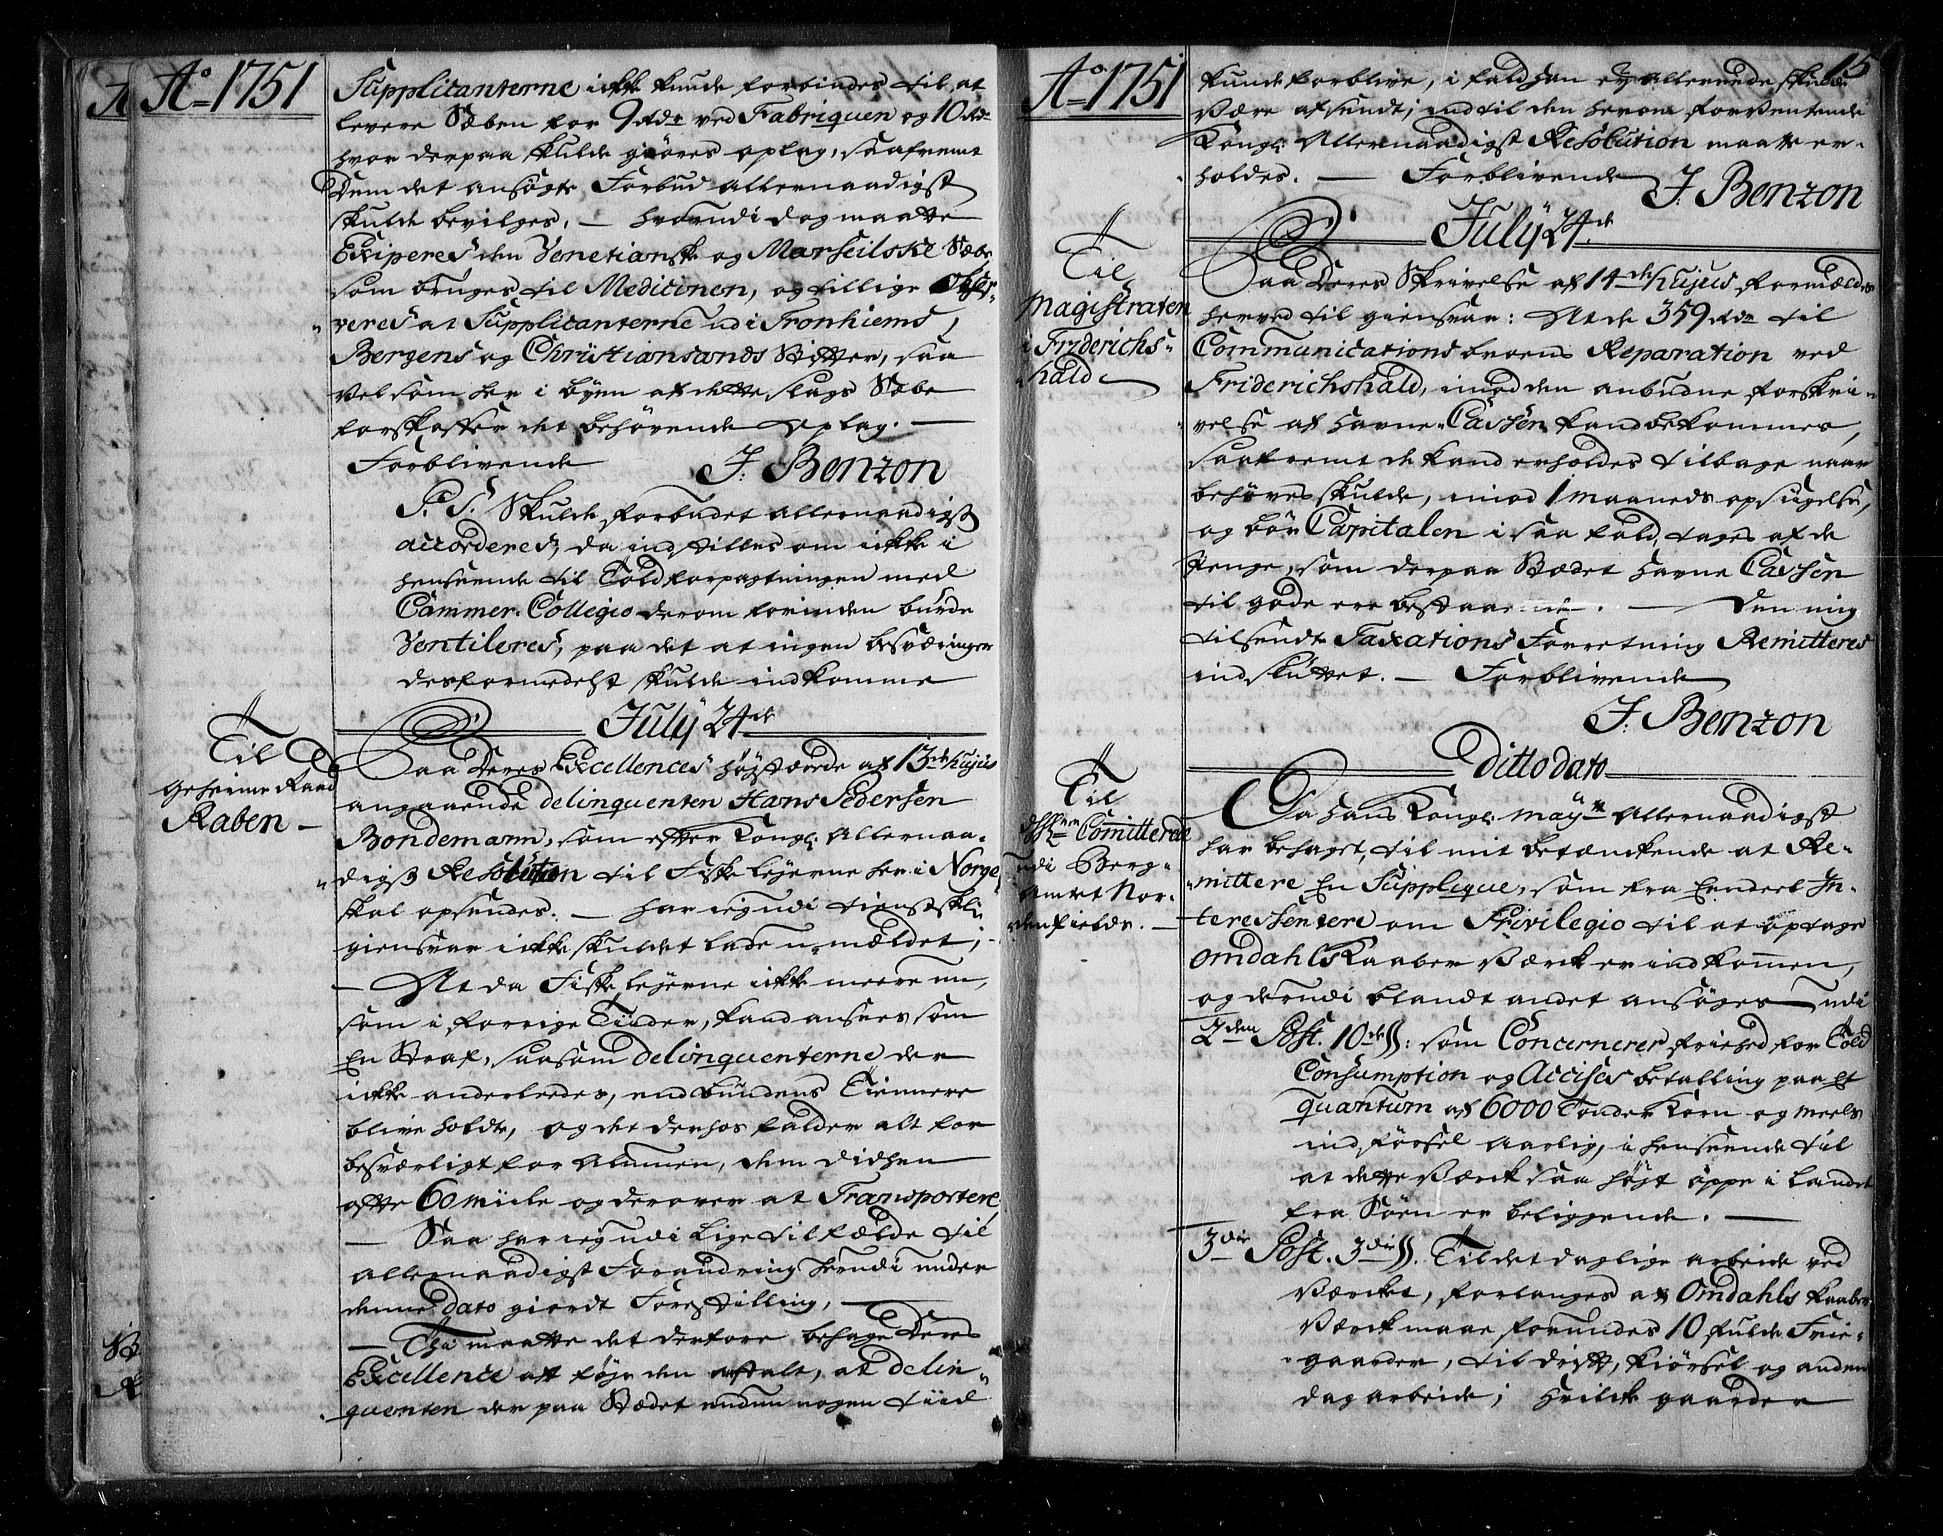 A° 1751
Supplicanterne ikke kunde forbindes til at
levere Sæben for 9 Rdr ved Fabriquen og 10 Rdr
hvor derpaa skulde giøres oplag, saafremt
Dem det ansøgte Forbud allernaadigst
skulde bevilges. — hvorudi dog maatte
Exiperes den Venetianske og Marseilske Sæbe
som bruges til Medicinen, og tillige Obser-
veres at Supplicanterne udi Tronhiems,
Bergens og Christiansands Stifter, saa
vel som her i byen af dette slags Sæbe
forskaffer det behøvende Oplag. —
Forblivende J: Benzon
P. S. Skulde forbudet allernaadigst
accorderes, da indstilles om ikke i
henseende til Toldforpagtningen med
Cammer-Collegio derom forinden burde
Ventileres, paa det at ingen besværinger
desformedelst skulde indkomme
July 24de
Til
Geheime Raad
Raben —
Paa Deres Excellences høystærede af 13de hujus
angaaende delinquenten Hans Pedersen
Bondemann, som efter Kongl: Allernaa-
digst Resolution til Fiske Lejerne her i Norge
skal opsendes. — har ieg udi tienstskl:
giensvar ikke skuldet lade u-mældet;
— At da Fiske Lejerne ikke meere nu,
som i forrige Tiider, kand ansees som
En Straf, saasom delinquenterne der
ikke anderledes, end bundens Tiennere
blive holdte, og det derhos falder alt for
besværligt for Almuen, dem didhen
ofte 60 miile og derover at Transportere,
— Saa har ieg udi lige tilfælde til
allernaadigst Forandring herudi under
denne dato giordt Forestilling,
— Thi maatte det derfore behage Deres
Excellence at føje den anstalt, at delin-
quenten der paa Stædet endnu nogen tiid
A° 1751
15
kunde forblive, i fald han ey allereede skulde
være afsendt; indtil den herom forventende
Kongl: Allernaadigst Resolution maatte er-
holdes. — Forblivende J. Benzon
July 24de
Til
Magistraten
i Friderichs-
hald
Paa Deres Skrivelse af 14de hujus, formældes
herved til giensvar: At de 359 Rdr til
Communications broens Reparation ved
Friderichshald, imod den anbudne forskri-
velse af Havne-Cassen kand bekommes,
saafremt de kand erholdes tilbage naar
behøves skulde, imod 1 maaneds opsigelse,
og bør Capitalen i saa fald, tages af de
Penge, som derpaa Stædet Havne Cassen
til gode ere bestaaende. — Den mig
tilsendte Taxations Forretning Remitteres
indsluttet. — Forblivende
J: Benzon
Ditto dato
Til
Committerede
udi Berg-
Amtet Nor-
denfields. —
Da Hans Kongl: May:tt Allernaadigst
har behaget, til mit betænkende at Re-
mittere En Supplique, som fra Eendeel In-
teressentere om Privilegio til at optage
Omdahls Kaaber Værck er indkommen,
og derudi blandt andet ansøges udi
2dem Post. 10de §: som Concernerer friehed for Told
Consumption og Accises betalling paa Et
quantum af 6000 Tønder Korn og meels
indførsel Aarlig, i henseende til
at dette Værck saa højt oppe i Landet
fra Søen er beliggende. —
3die Post. 3die §. Til det daglige arbeide ved
Værcket, forlanges at Omdahls Kaaber
Værck maae forundes 10 fulde Frie-
gaarder, til drift, kiørsel og anden
dag arbeide; hvilcke gaarder